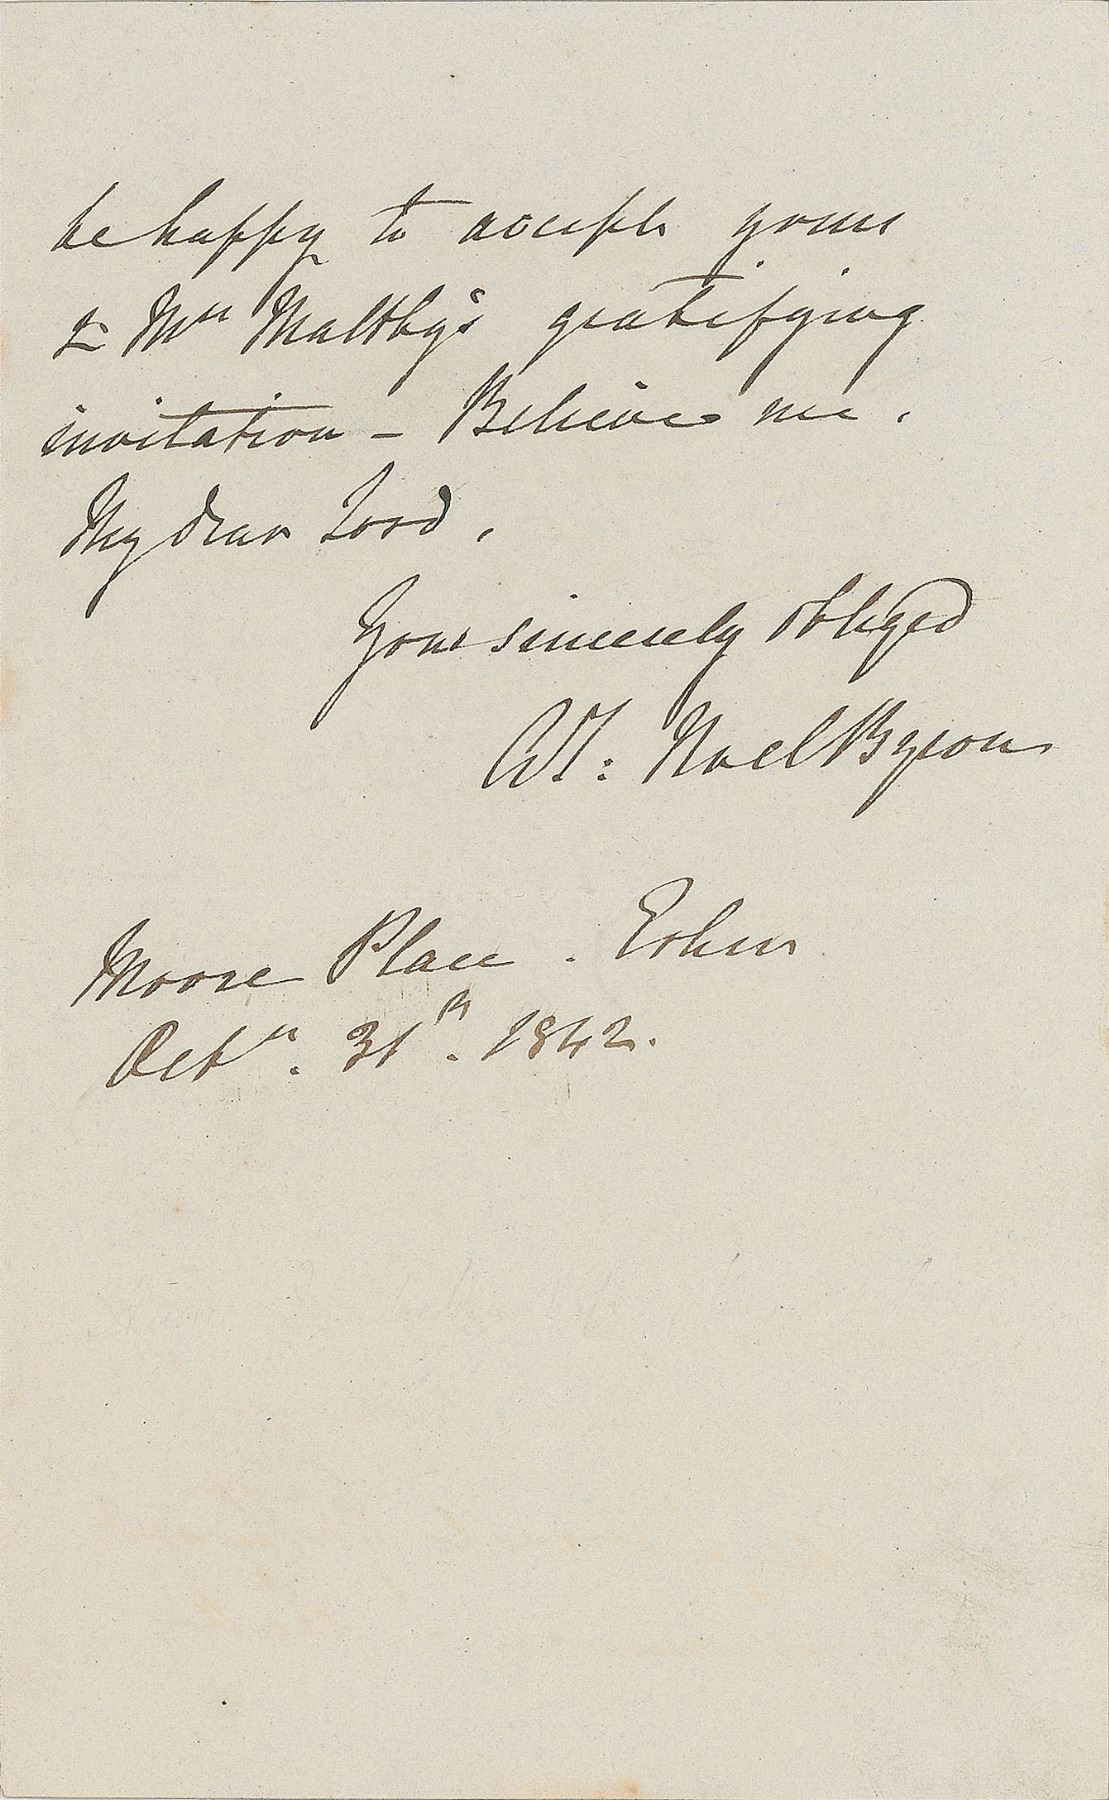 be happy to accept yours
& Mrs Maltby's gratifying
invitation – Believe me,
My dear Lord,
Your sincerely obliged
AI: Noel Byron
Moore Place. Esher
Octr. 31st. 1842.